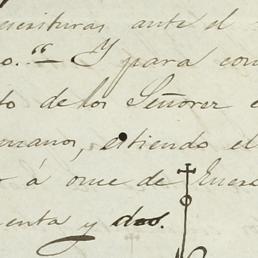 escrituras ante el
o." Y para con
to de los Señores e
emano, estiendo el
á once de Ener
enta y dos.